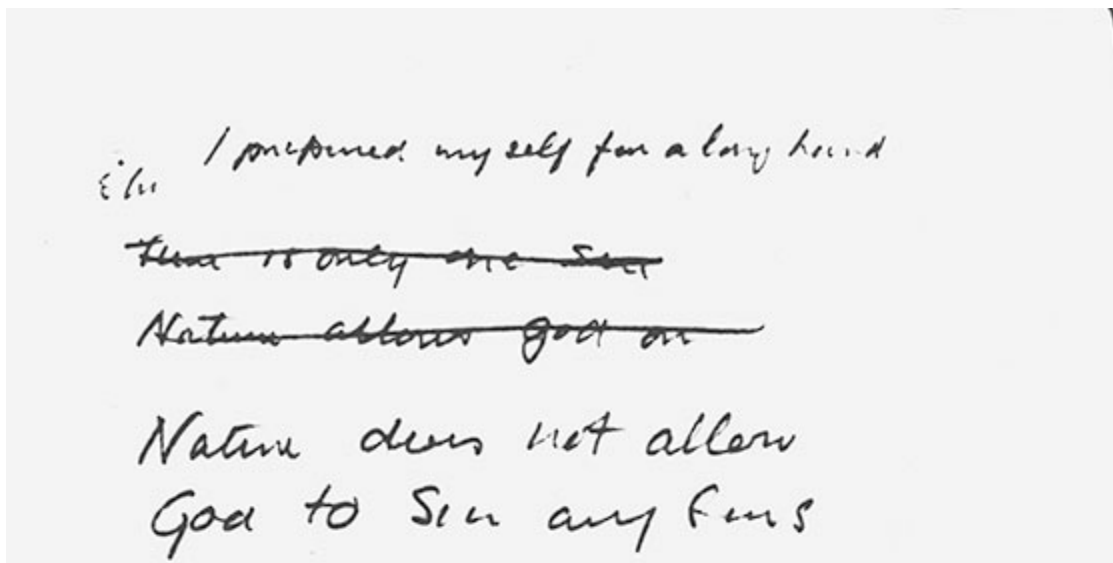 I prepared my self for a long hand
There is only one Sin
Nature allows god on
Nature does not allow
God to Sin any